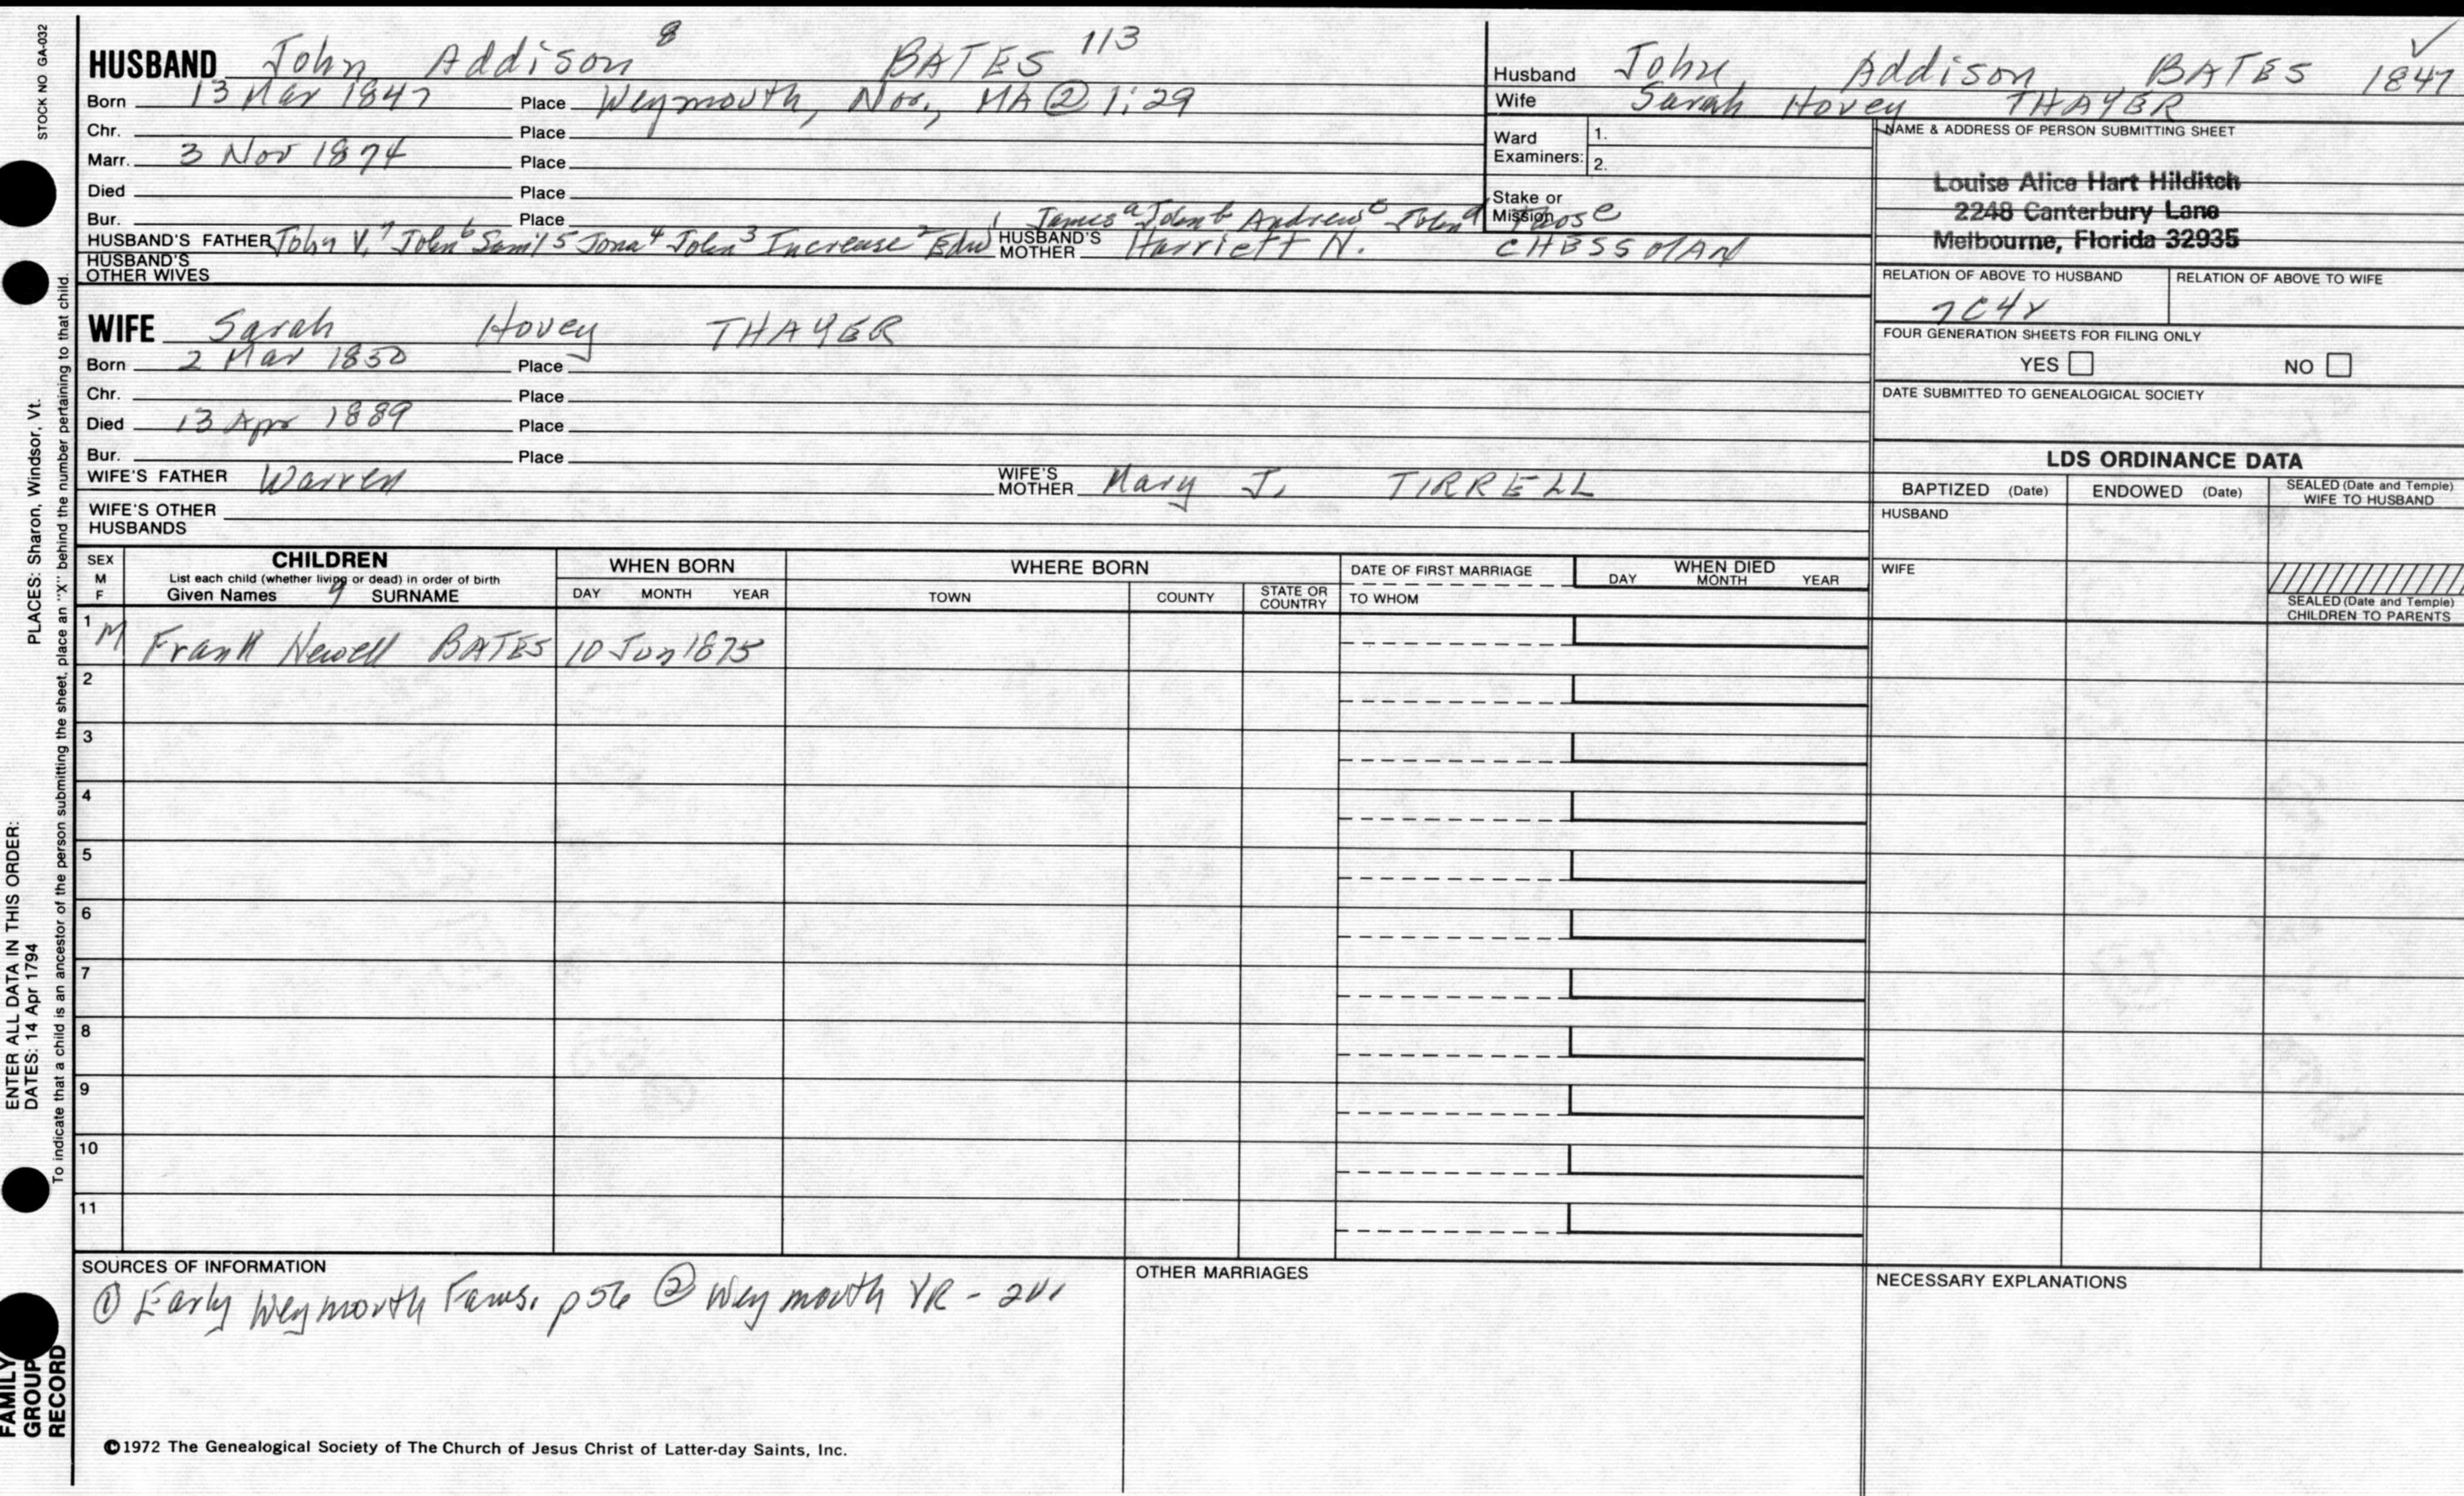 STOCK NO GA-032
PLACES: Sharon, Windsor, Vt.
ENTER ALL DATA IN THIS ORDER:
DATES: 14 Apr 1794
To indicate that a child is an ancestor of the person submitting the sheet, place an "X" behind the number pertaining to that child.
FAMILY GROUP RECORD
HUSBAND John Addison 8 BATES 113
Born 13 Mar 1847 Place Weymouth, Nor., MA ② 1:29
Chr. Place
Marr. 3 Nov 1874 Place
Died Place
Bur. Place
HUSBAND'S FATHER John V.7 John6 Saml5 Jona4 John3 Increase2 Edw1
HUSBAND'S MOTHER James a John b Andrew c John d e Harriett N. CHESSMAN
HUSBAND'S OTHER WIVES
WIFE Sarah Hovey THAYER
Born 2 Mar 1850 Place
Chr. Place
Died 13 Apr 1889 Place
Bur. Place
WIFE'S FATHER Warren
WIFE'S MOTHER Mary J. TIRRELL
WIFE'S OTHER HUSBANDS
Husband John Addison BATES 1847 ✓
Wife Sarah Hovey THAYER
Ward Examiners: 1.
2.
Stake or Mission
NAME & ADDRESS OF PERSON SUBMITTING SHEET
Louise Alice Hart Hilditch
2248 Canterbury Lane
Melbourne, Florida 32935
RELATION OF ABOVE TO HUSBAND RELATION OF ABOVE TO WIFE
7C4r
FOUR GENERATION SHEETS FOR FILING ONLY
YES NO
DATE SUBMITTED TO GENEALOGICAL SOCIETY
LDS ORDINANCE DATA
BAPTIZED (Date) ENDOWED (Date) SEALED (Date and Temple) WIFE TO HUSBAND
HUSBAND
WIFE
SEALED (Date and Temple) CHILDREN TO PARENTS
SEX M F
CHILDREN
List each child (whether living or dead) in order of birth
Given Names 9 SURNAME
WHEN BORN
DAY MONTH YEAR
WHERE BORN
TOWN COUNTY STATE OR COUNTRY
DATE OF FIRST MARRIAGE
TO WHOM
WHEN DIED
DAY MONTH YEAR
1 M Frank Newell BATES 10 Jun 1875
2
3
4
5
6
7
8
9
10
11
SOURCES OF INFORMATION
① Early Weymouth Fams. p56 ② Weymouth VR -
OTHER MARRIAGES
NECESSARY EXPLANATIONS
©1972 The Genealogical Society of The Church of Jesus Christ of Latter-day Saints, Inc.